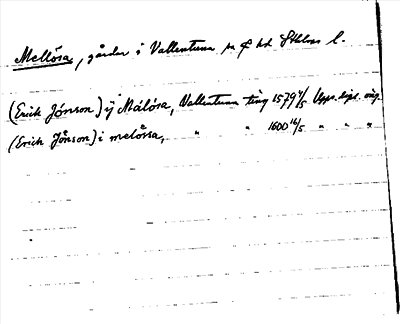 Mellösa, gårdar i Vallentuna sn o hd Sthlms l.
(Erich Jónson) ij Málósa, Vallentuna ting 1579 4/5 Upps. dipl. orig.
(Erich Jånson) i melåssa, " " 1600 16/5 " " "